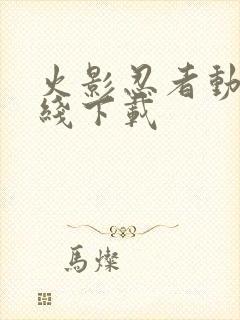 火影忍者動
綫下載
馬燦